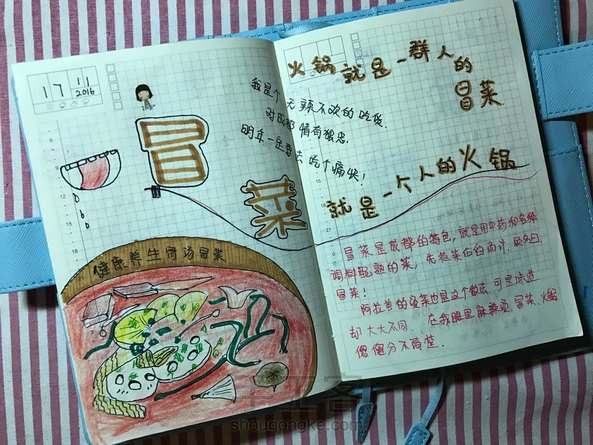 17 11
2016
我是个无辣不欢的吃货.
对成都情有独忠.
明年一定要去吃个痛快!
冒
菜
健康养生骨汤冒菜
火锅就是一群人的
冒菜
就是一个人的火锅
冒菜是成都的特色,就是用中药和各种
调料
的菜;
冒菜!
的冒菜也是这个做法,可是味道
却大大不同.在我眼里麻辣烫、冒菜、火锅
傻傻分不清楚.
手工客
shougongke.com